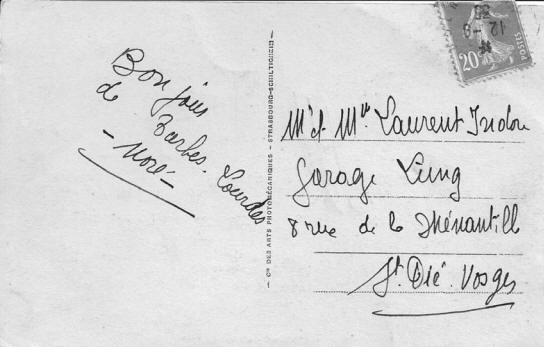 Bonjour
de Tarbes. Lourdes
- Noré -
Cie DES ARTS PHOTOMÉCANIQUES - STRASBOURG-SCHILTIGHEIM
12-9
35
20c
POSTES
Mr et Mme Laurent Isidore
Garage Lung
8 rue de la Ménantille
St. Dié. Vosges